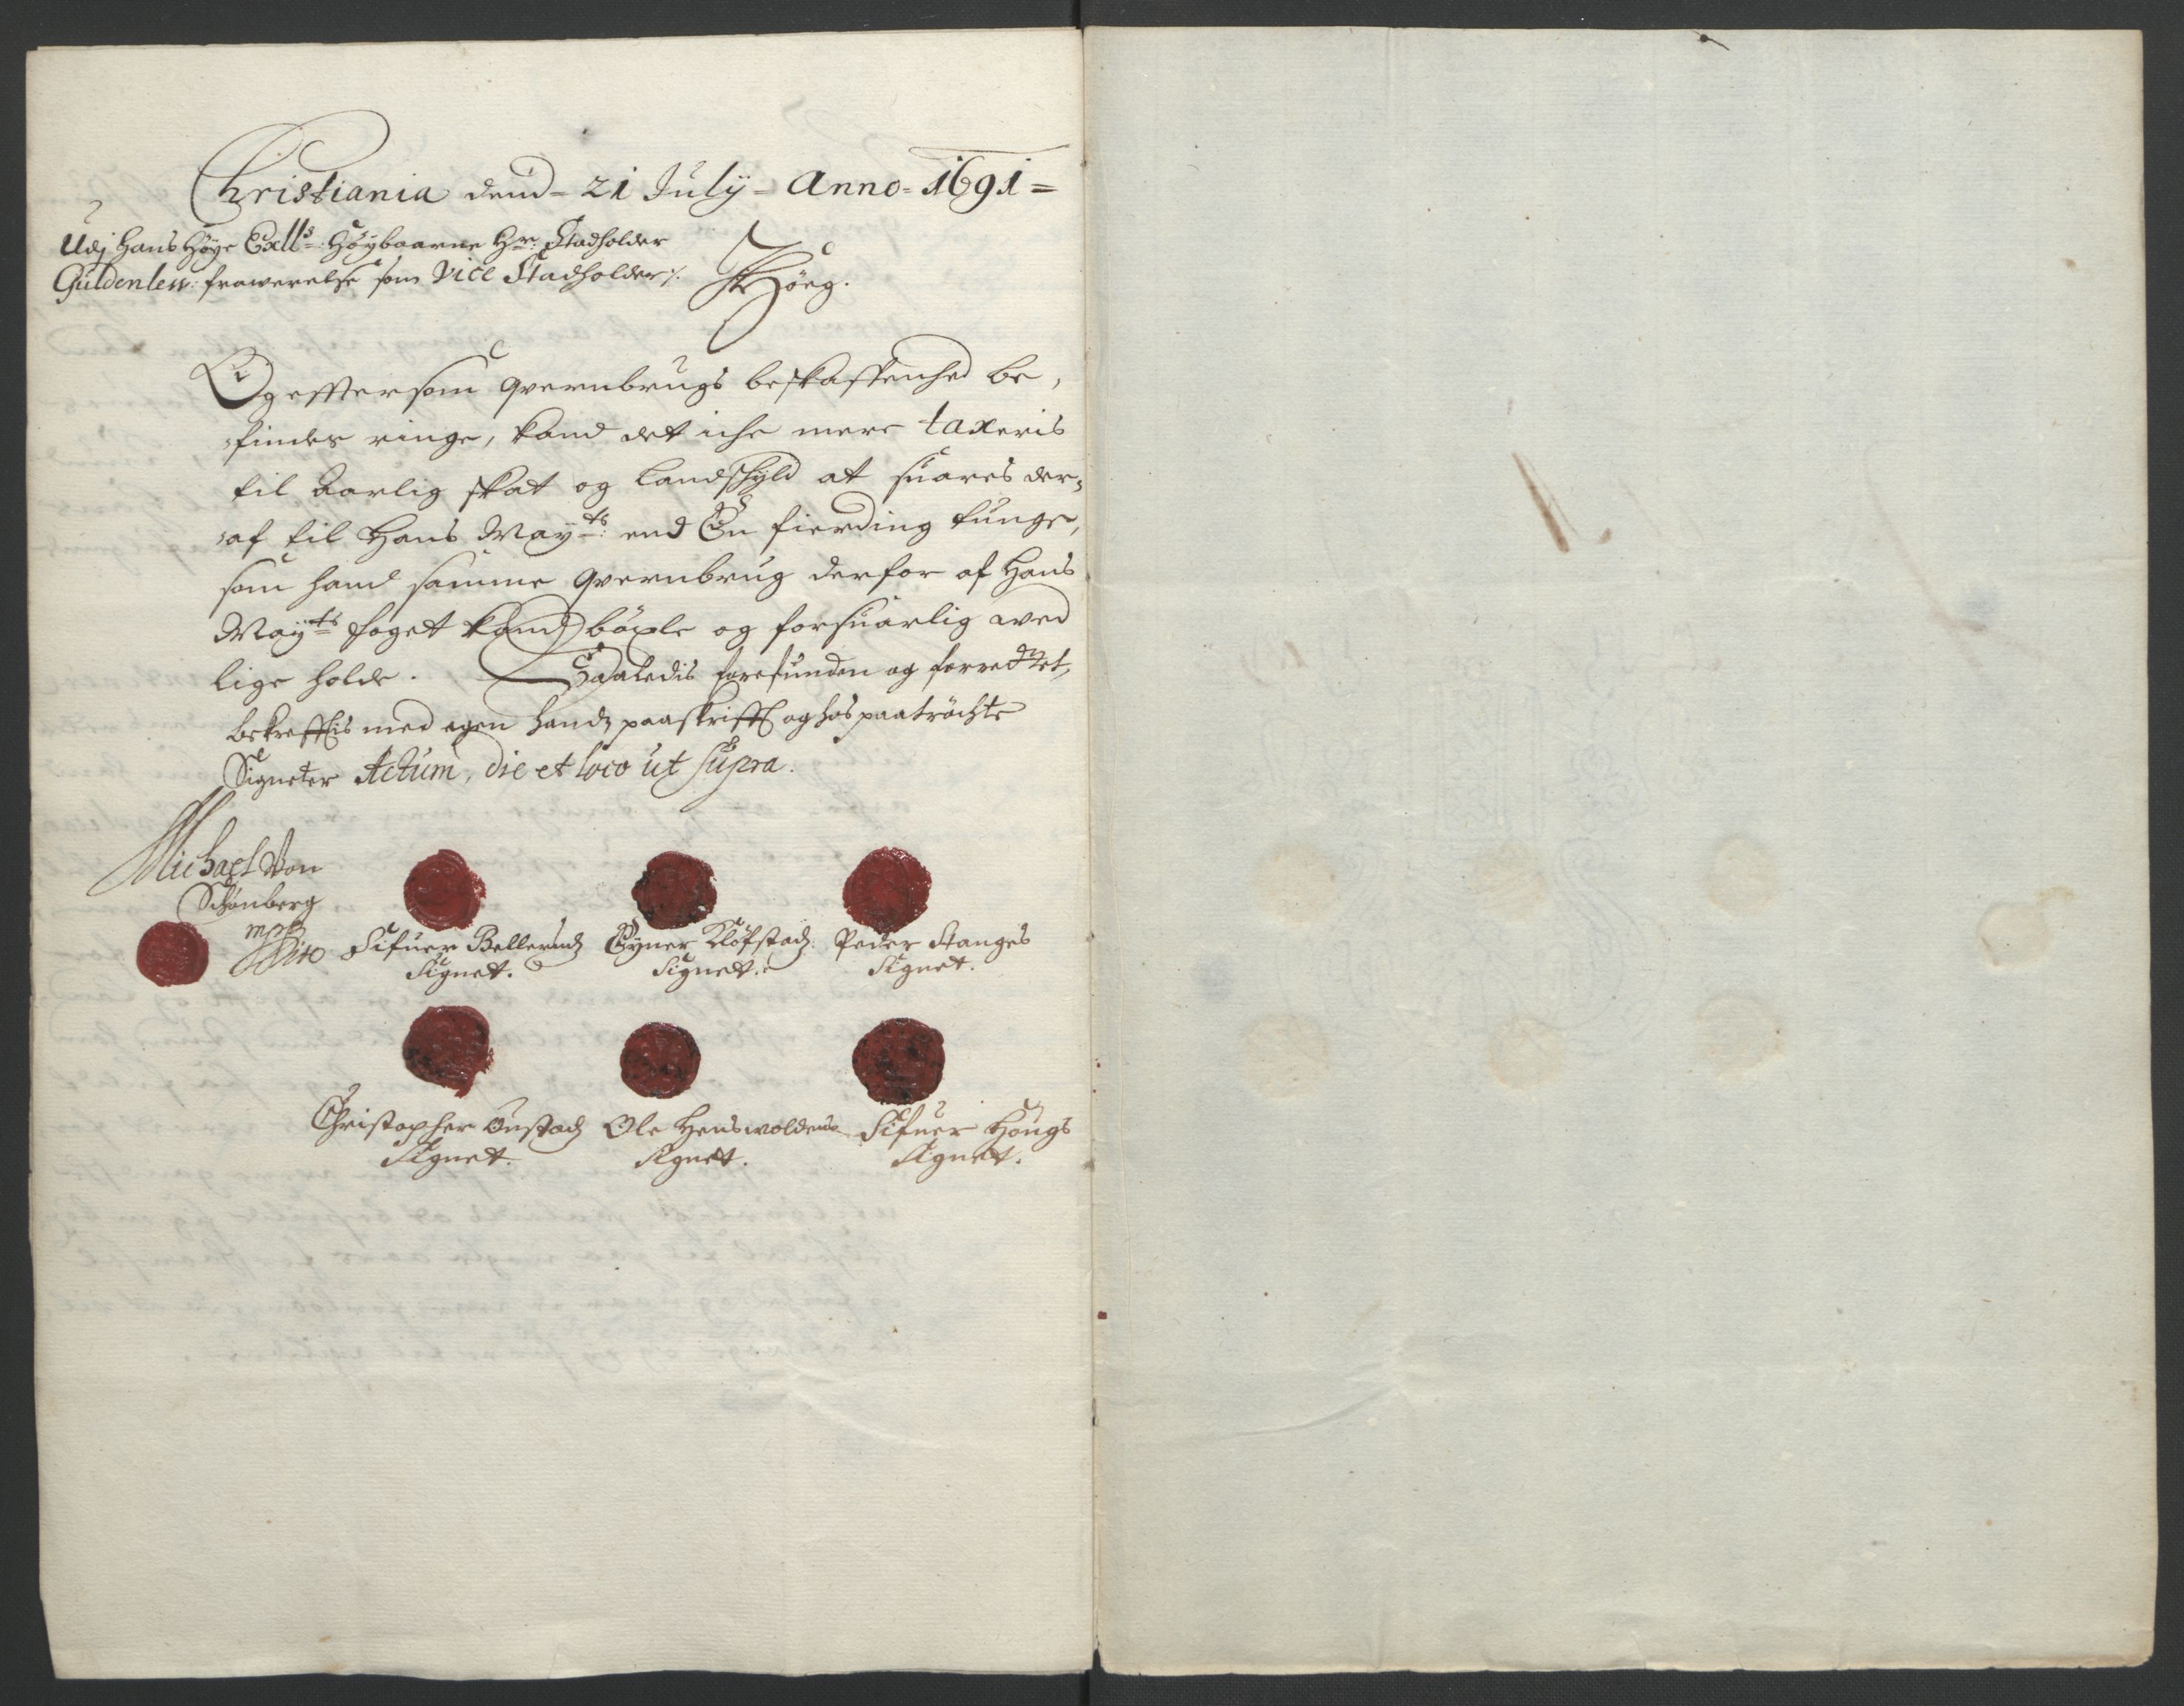 Christiania dend= 21 July= Anno= 1691=
Udj hans Høye Exll:s Høybaarne Hr: Stadholder
Guldenlew: frawerelse som Vice Stadholder ⁒.
Høeg.
Og effter som qvernbrugs beskaffenhed be,
finder ringe, kand det iche mere taxeris
til aarlig skat og landschyld at suares der=
af til Hans May:ts end En fierding tunge,
som hand samme qvernbrug derfor af Hans
May:ts foget kand böxle og forsuarlig wed
lige holde. Saaledis forefunden og forrettet,
bekrefftis med egen handz paaskrifft og hos paatröchte
Signeter Actum, die et loco ut supra.
Michael Von
Schönberg
mpp
Sifuer Bellerudz
Signet.
Eyner Klöfstadz
Signet.
Peder Stanges
Signet.
Christopher Onstadz
Signet.
Ole Henswoldens
Signet.
Sifuer Hougs
Signet.